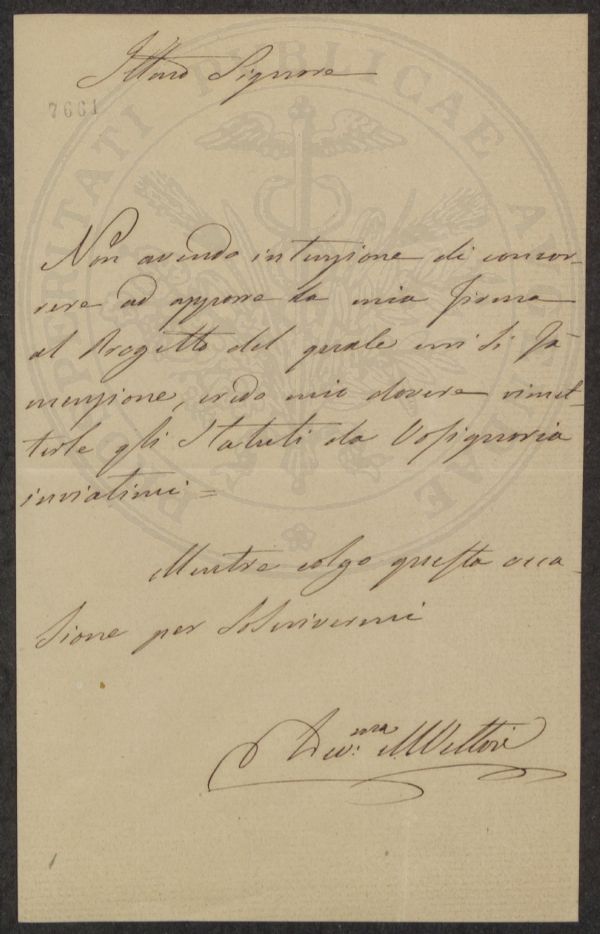 Illmo Signore
7661
Non avendo intenzione di concor-
rere ad apporre la mia firma
al Progetto del quale mi si fà
menzione, credo mio dovere rimet-
terle gli Statuti da Vossignoria
inviatimi =
Mentre colgo questa occa-
sione per Soscrivermi
Dev.ma M Vettori